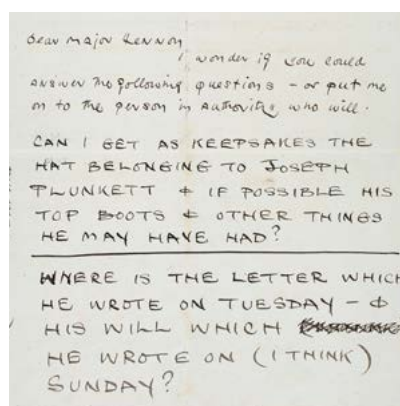 Dear Major Lennon,
wonder if you could
answer the following questions – or put me
on to the person in authority who will.
CAN I GET AS KEEPSAKES THE
HAT BELONGING TO JOSEPH
PLUNKETT & IF POSSIBLE HIS
TOP BOOTS & OTHER THINGS
HE MAY HAVE HAD?
WHERE IS THE LETTER WHICH
HE WROTE ON TUESDAY – &
HIS WILL WHICH
HE WROTE ON (I THINK)
SUNDAY?